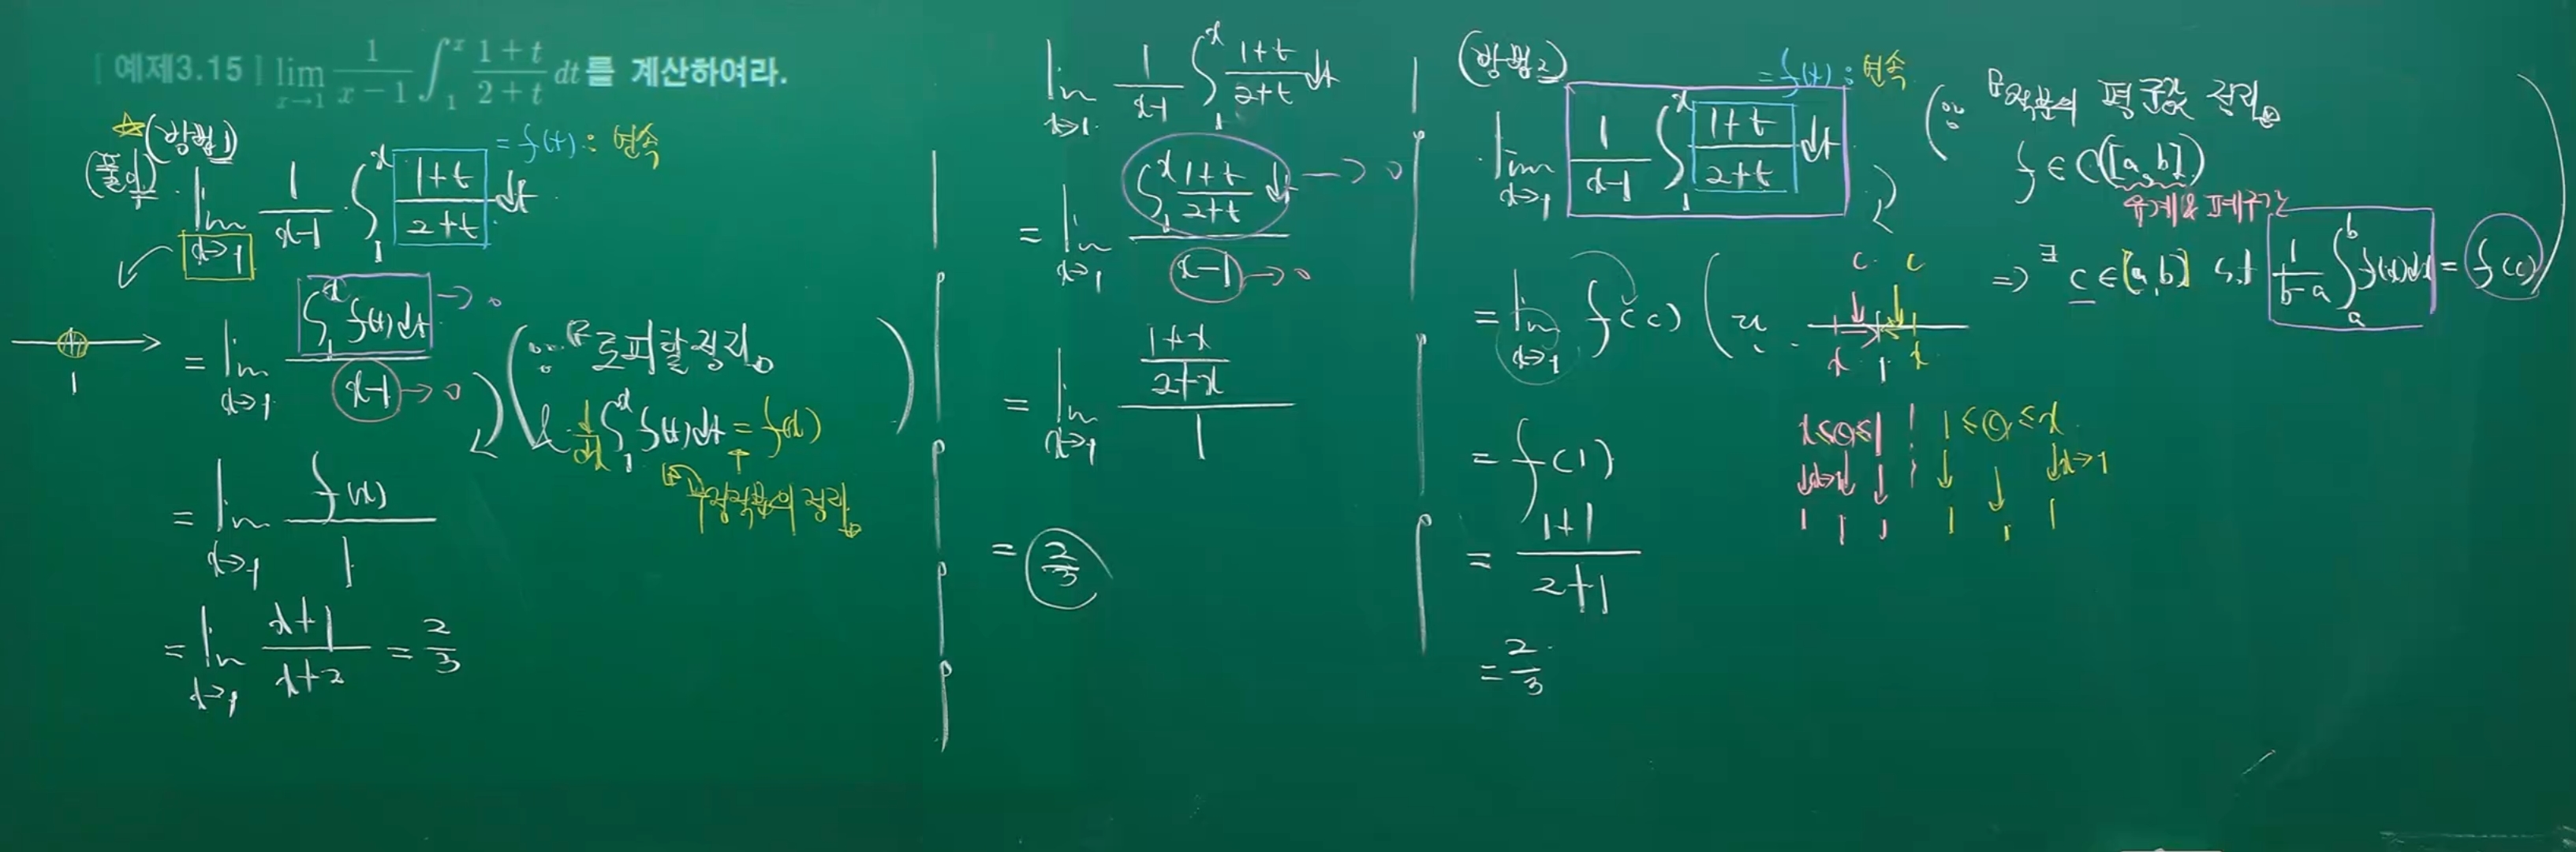 [예제3.15] lim_{x→1} 1/(x-1) ∫_1^x (1+t)/(2+t) dt를 계산하여라.
☆(방법1)
(풀이)
lim_{x→1} 1/(x-1) · ∫_1^x (1+t)/(2+t) dt
= f(t) : 연속
1
= lim_{x→1} (∫_1^x f(t)dt → 0)/(x-1 → 0)
(∵ 『로피탈정리』
& d/dx ∫_1^x f(t)dt = f(x)
『정적분의 정리』)
= lim_{x→1} f(x)/1
= lim_{x→1} (x+1)/(x+2) = 2/3
lim_{x→1} 1/(x-1) ∫_1^x (1+t)/(2+t) dt
= lim_{x→1} (∫_1^x (1+t)/(2+t) dt → 0)/(x-1 → 0)
= lim_{x→1} ((1+x)/(2+x))/1
= 2/3
(방법2)
= f(t) : 연속
lim_{x→1} 1/(x-1) ∫_1^x (1+t)/(2+t) dt
(∵ 『적분의 평균값 정리』
f ∈ C([a,b])
유계&폐구간
⇒ ∃ c ∈ [a,b] s.t 1/(b-a) ∫_a^b f(x)dx = f(c))
= lim_{x→1} f(c)
c c
x 1 x
= f(1)
x ≤ c ≤ 1 1 ≤ c ≤ x
↓x→1 ↓ ↓ ↓ ↓ ↓x→1
1 1 1 1 1 1
= (1+1)/(2+1)
= 2/3